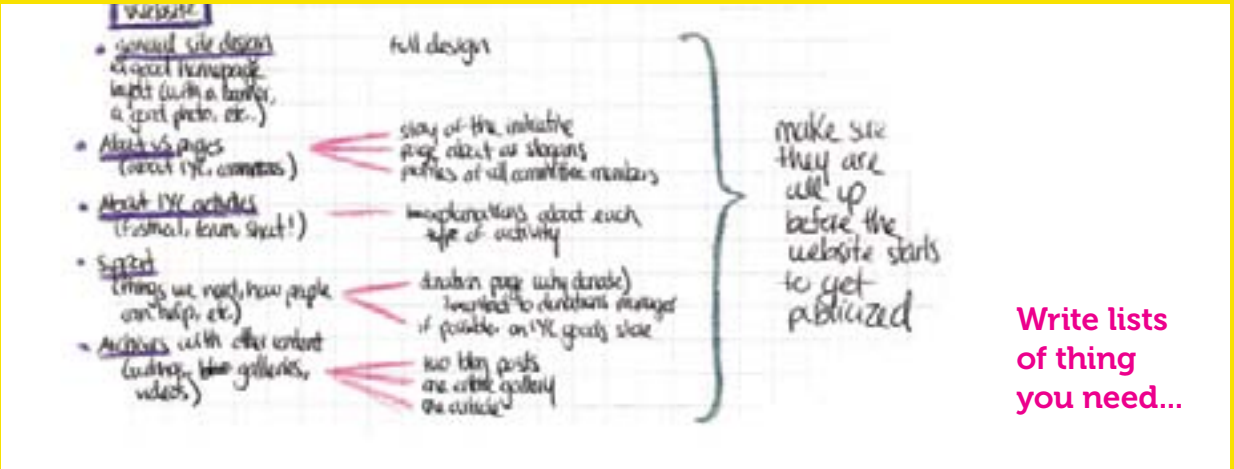 Website
• general site design
a good homepage
layout (with a banner,
a good photo, etc.)
full design
• About us pages
(about IYC, committees)
story of the initiative
page about our slogans
profiles of all committee members
• About IYC activities
(Festival, town shout!)
explanations about each
type of activity
• Support
(things we need, how people
can help, etc.)
donation page (why donate)
contact to donations manager
if possible an IYC goods store
• Archives with other content
(writings, galleries,
videos)
two blog posts
one gallery
one article
make sure
they are
all up
before the
website starts
to get
publicized
Write lists
of thing
you need...